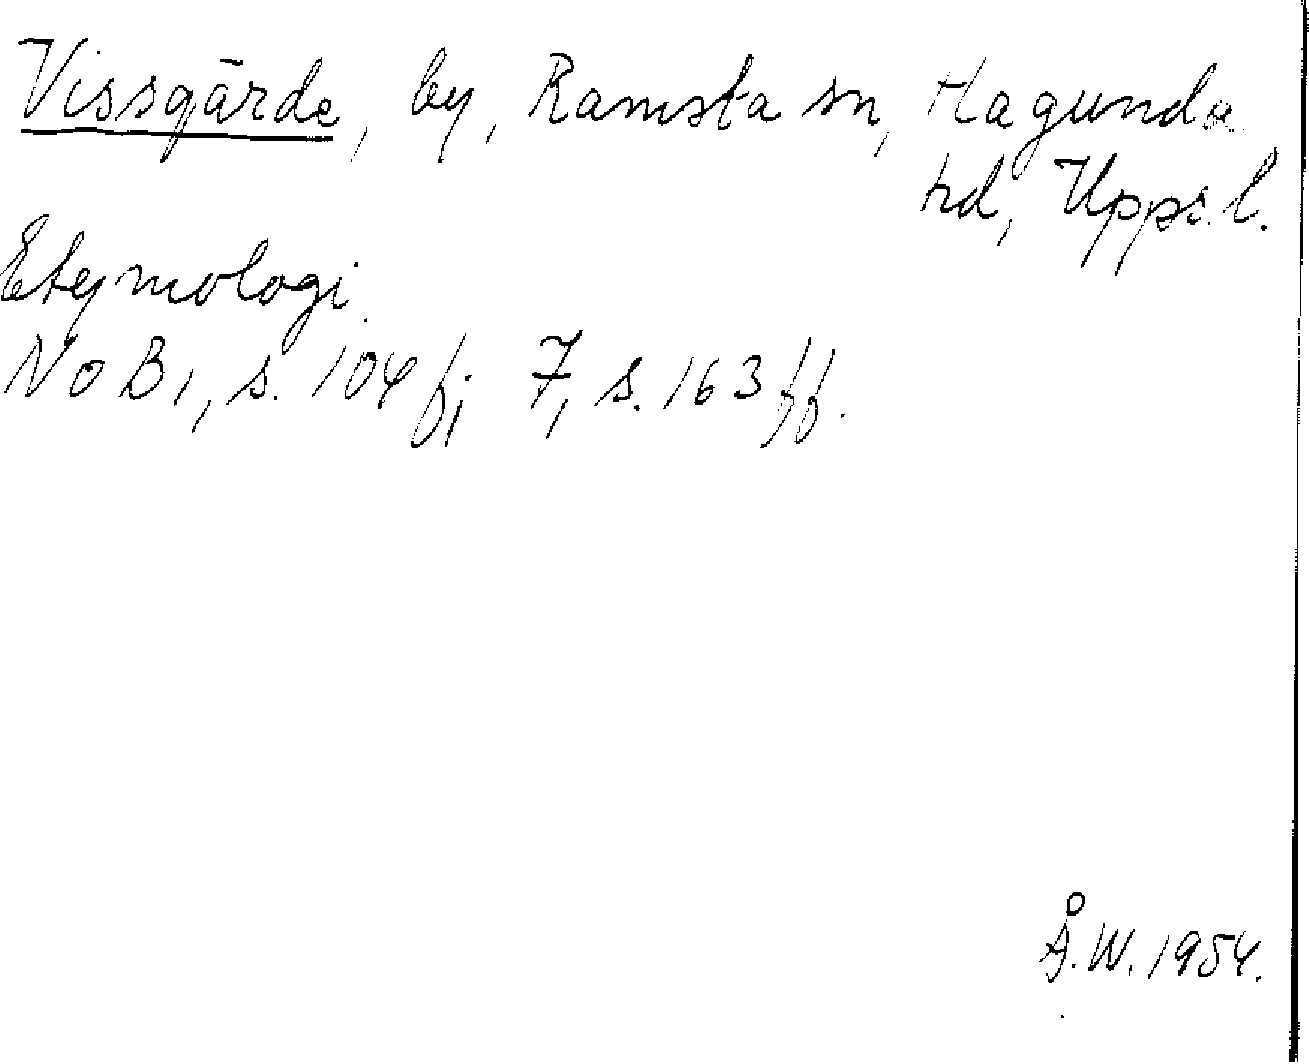 Vissgärde, by, Ramsta sn, Hagunda
hd, Upps. l.
Etymologi.
NoB 1, s. 104 f; 7, s. 163 ff.
Å.W. 1954.